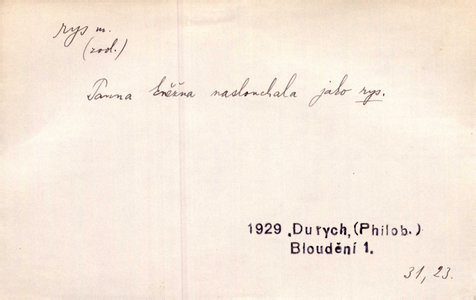 rys m.
(zool.)
Panna kněžna naslouchala jako rys.
1929 Durych, (Philob.)
Bloudění 1.
31, 23.